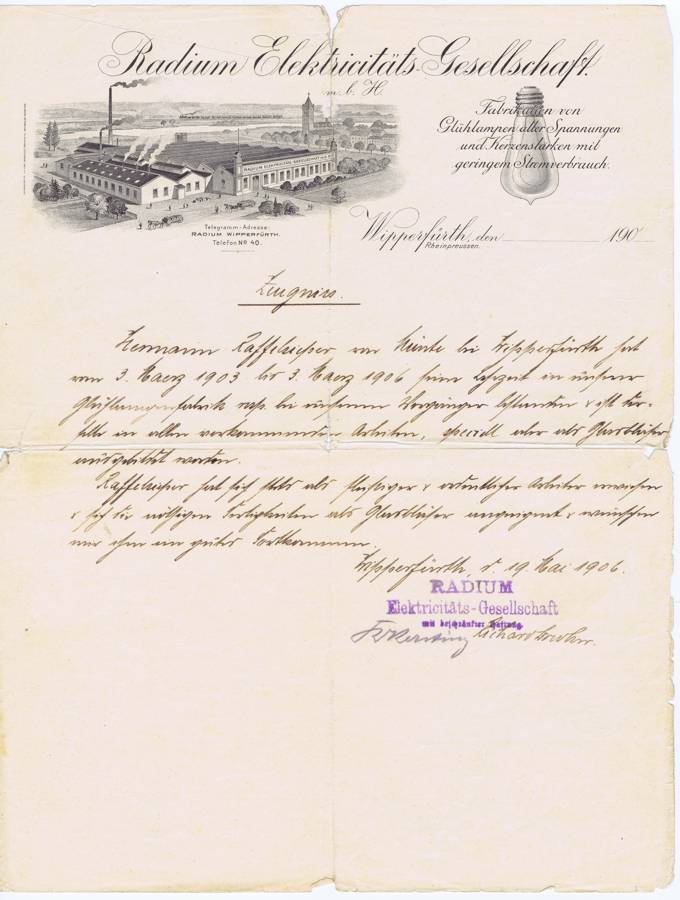 Radium Elektricitäts-Gesellschaft.
m. b. H.
Fabrikation von
Glühlampen aller Spannungen
und Kerzenstärken mit
geringem Stromverbrauch.
RADIUM ELEKTRICITÄTS-GESELLSCHAFT M.B.H.
Telegramm-Adresse:
RADIUM WIPPERFÜRTH.
Telefon No 40.
Wipperfürth, den 190
Rheinpreussen.
Zeugniss.
Hermann Raffelsieper von bei Wipperfürth hat
vom 3. Maerz 1903 bis 3. Maerz 1906 seine Lehrzeit in unserer
Glühlampenfabrik resp. bei unserem Vorgänger bestanden & ist der-
selbe in allen vorkommenden Arbeiten, speciell aber als Glasbläser
ausgebildet worden.
Raffelsieper hat sich stets als fleissiger & ordentlicher Arbeiter erwiesen
& sich die nötigen Fertigkeiten als Glasbläser angeeignet & wünschen
wir ihm ein gutes Fortkommen.
Wipperfürth d. 19. Mai 1906.
RADIUM
Elektricitäts-Gesellschaft
mit beschränkter Haftung.
Kersting Richard